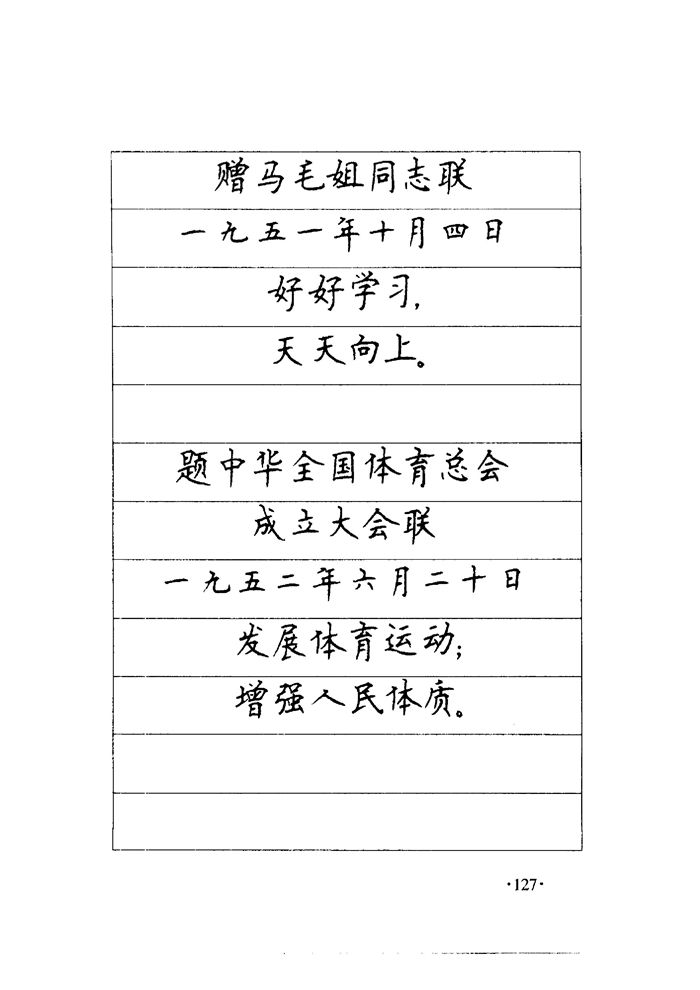 赠马毛姐同志联
一九五一年十月四日
好好学习,
天天向上。
题中华全国体育总会
成立大会联
一九五二年六月二十日
发展体育运动;
增强人民体质。
·127·